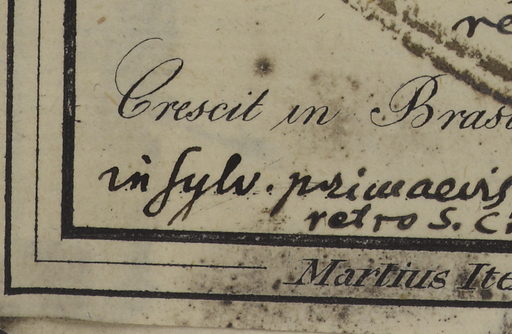 re
Crescit in Bras
in sylv. primaevis
retro S. C
Martius Ite